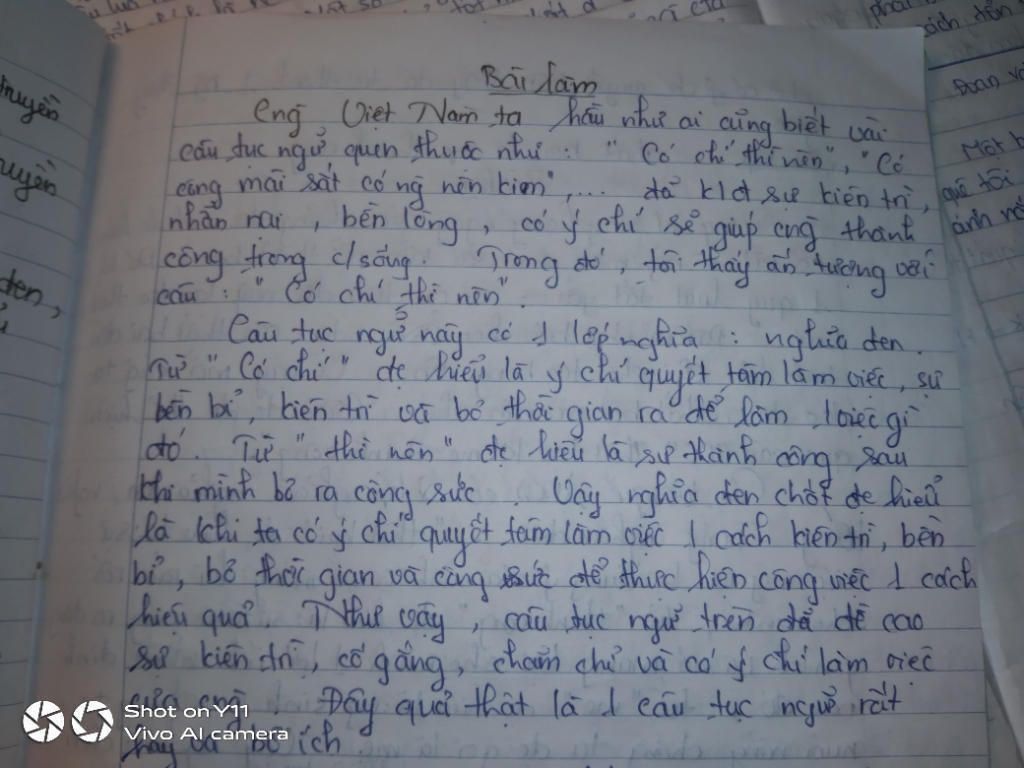 Bài làm
Cng Việt Nam ta hầu như ai cũng biết vài
câu tục ngữ quen thuộc như: "Có chí thì nên", "Có
công mài sắt có ng nên kim",... đã kđ sự kiên trì,
nhẫn nại, bền lòng, có ý chí sẽ giúp cng thành
công trong c/sống. Trong đó, tôi thấy ấn tượng với
câu: "Có chí thì nên".
Câu tục ngữ này có 1 lớp nghĩa: nghĩa đen.
Từ "Có chí" đc hiểu là ý chí quyết tâm làm việc, sự
bền bỉ, kiên trì và bỏ thời gian ra để làm 1 việc gì
đó. Từ "thì nên" đc hiểu là sự thành công sau
khi mình bỏ ra công sức. Vậy nghĩa đen chốt đc hiểu
là khi ta có ý chí quyết tâm làm việc 1 cách kiên trì, bền
bỉ, bỏ thời gian và công sức để thực hiện công việc 1 cách
hiệu quả. Như vậy, câu tục ngữ trên đã đề cao
sự kiên trì, cố gắng, chăm chỉ và có ý chí làm việc
của cng. Đây quả thật là 1 câu tục ngữ rất
hay và bổ ích.
truyền
uyền
đen,
Đoạn
Một
quê tôi
cách dẫn
Shot on Y11
Vivo AI camera